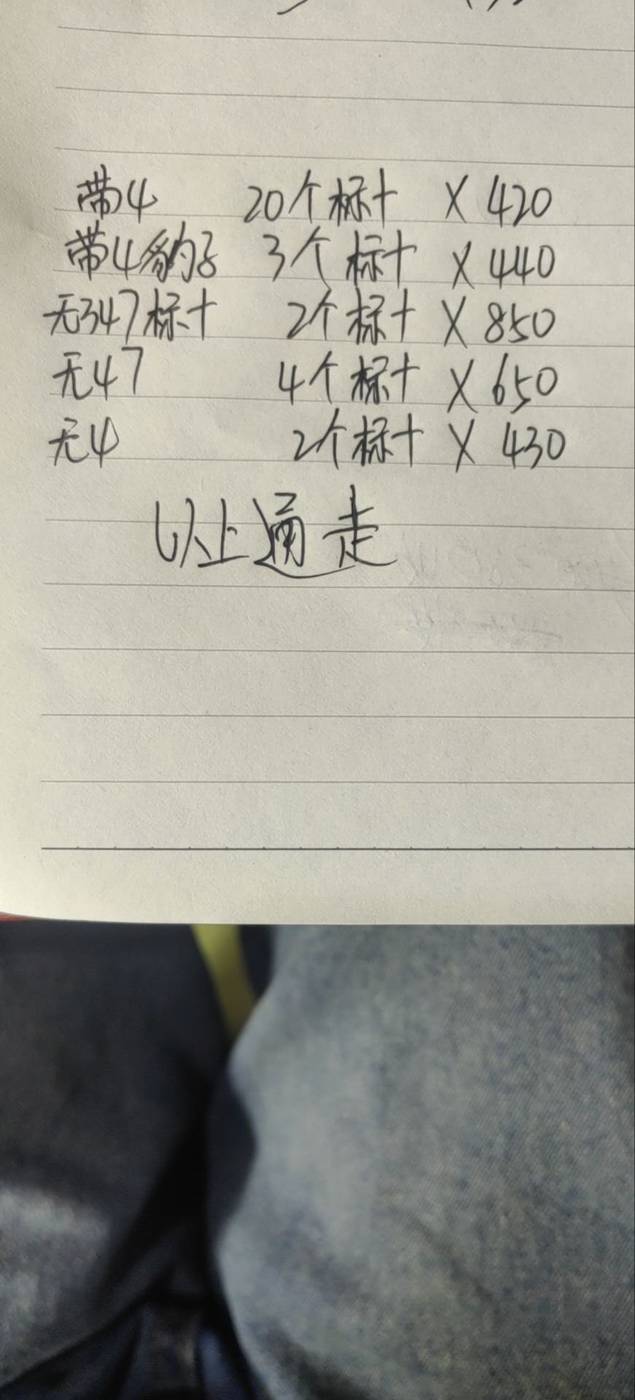 带4 20个标十 X 420
带4豹子 3个标十 X 440
无347标十 2个标十 X 850
无47 4个标十 X 650
无4 2个标十 X 430
以上通走